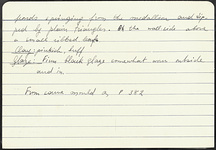 fronds springing from the medallion and tip-
ped by plain triangles. At the wall side above
a small ribbed
Clay: pinkish, buff
glaze - Firm black glaze somewhat worn outside
and in.
From same mould as P 382